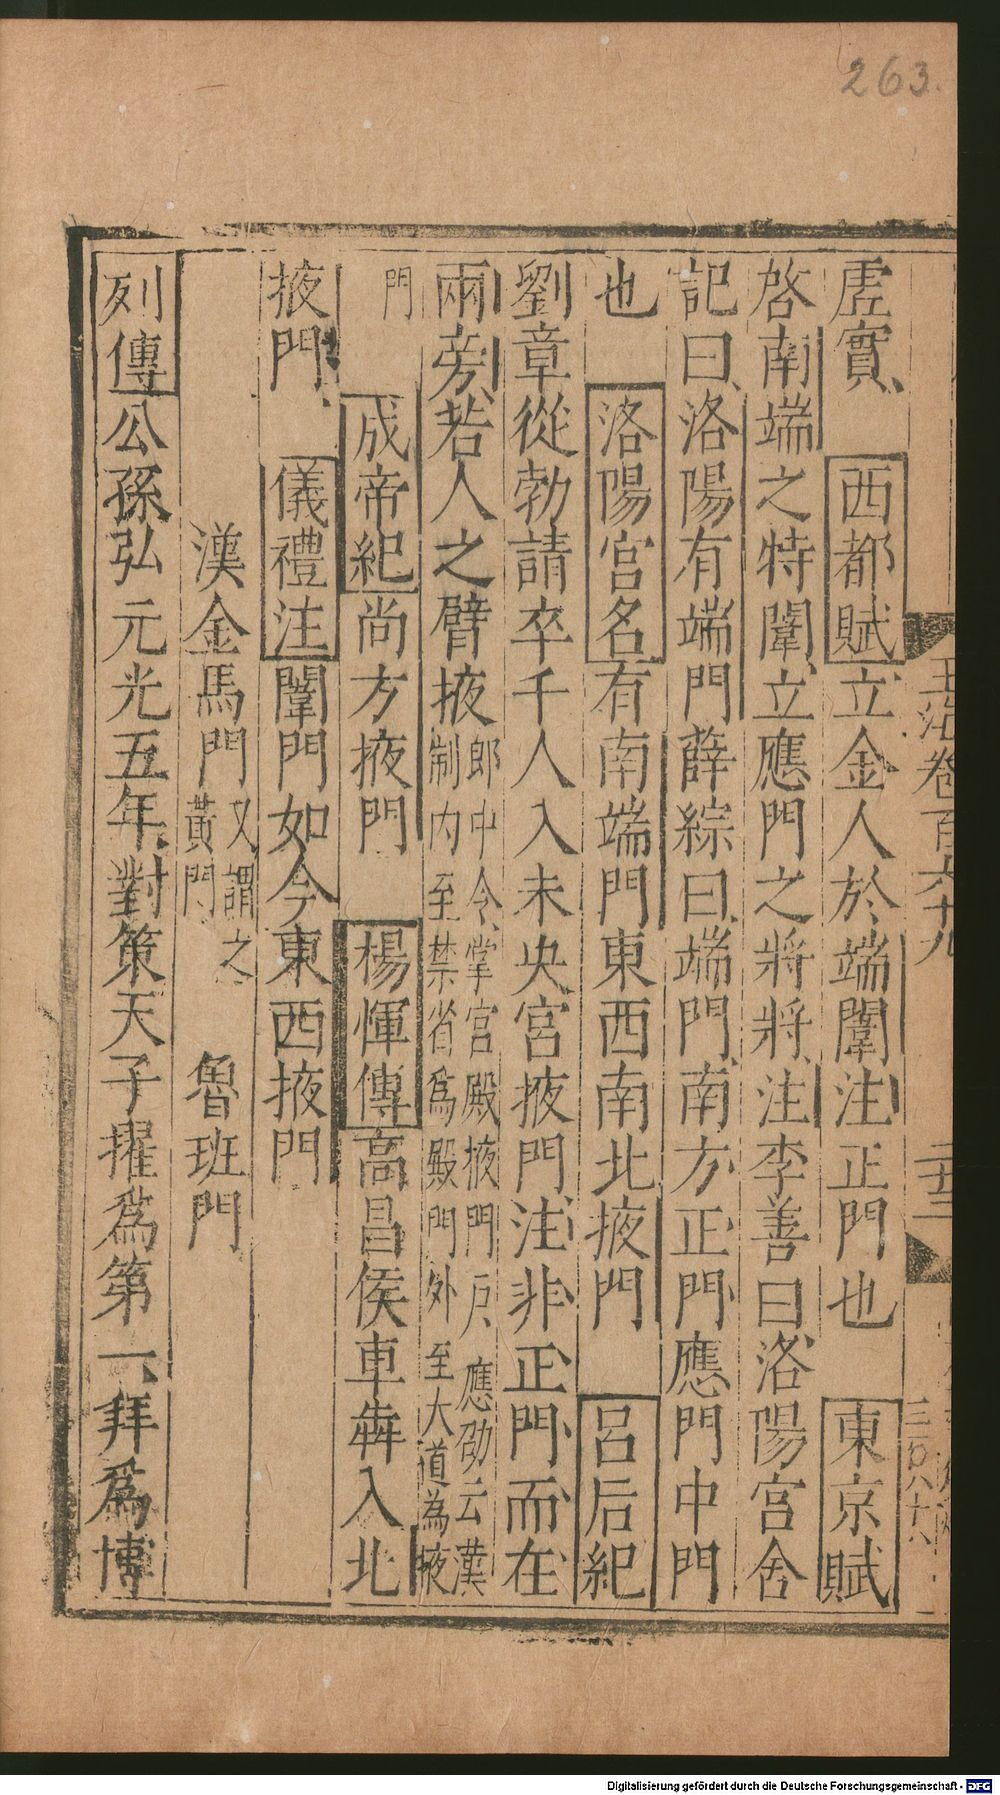 263.
玉海卷百六十九
二十三
虗實、　西都賦立金人於端闈注正門也　東京賦
啓南端之特闈立應門之將將注李善曰洛陽宫舍
記曰、洛陽有端門薛綜曰端門、南方正門應門中門
也　洛陽宫名有南端門東西南北掖門　呂后紀
劉章從勃請卒千人入未央宫掖門注非正門而在
兩旁、若人之臂掖郎中令掌宫殿掖門戶、應劭云漢制内至禁省爲殿門外至大道為掖
門　成帝紀尚方掖門　楊惲傳高昌侯車犇入北
掖門、　儀禮注闈門如今東西掖門
漢金馬門又謂之黃門　魯班門
列傳公孫弘元光五年對策天子擢爲第一拜爲博
Digitalisierung gefördert durch die Deutsche Forschungsgemeinschaft - DFG